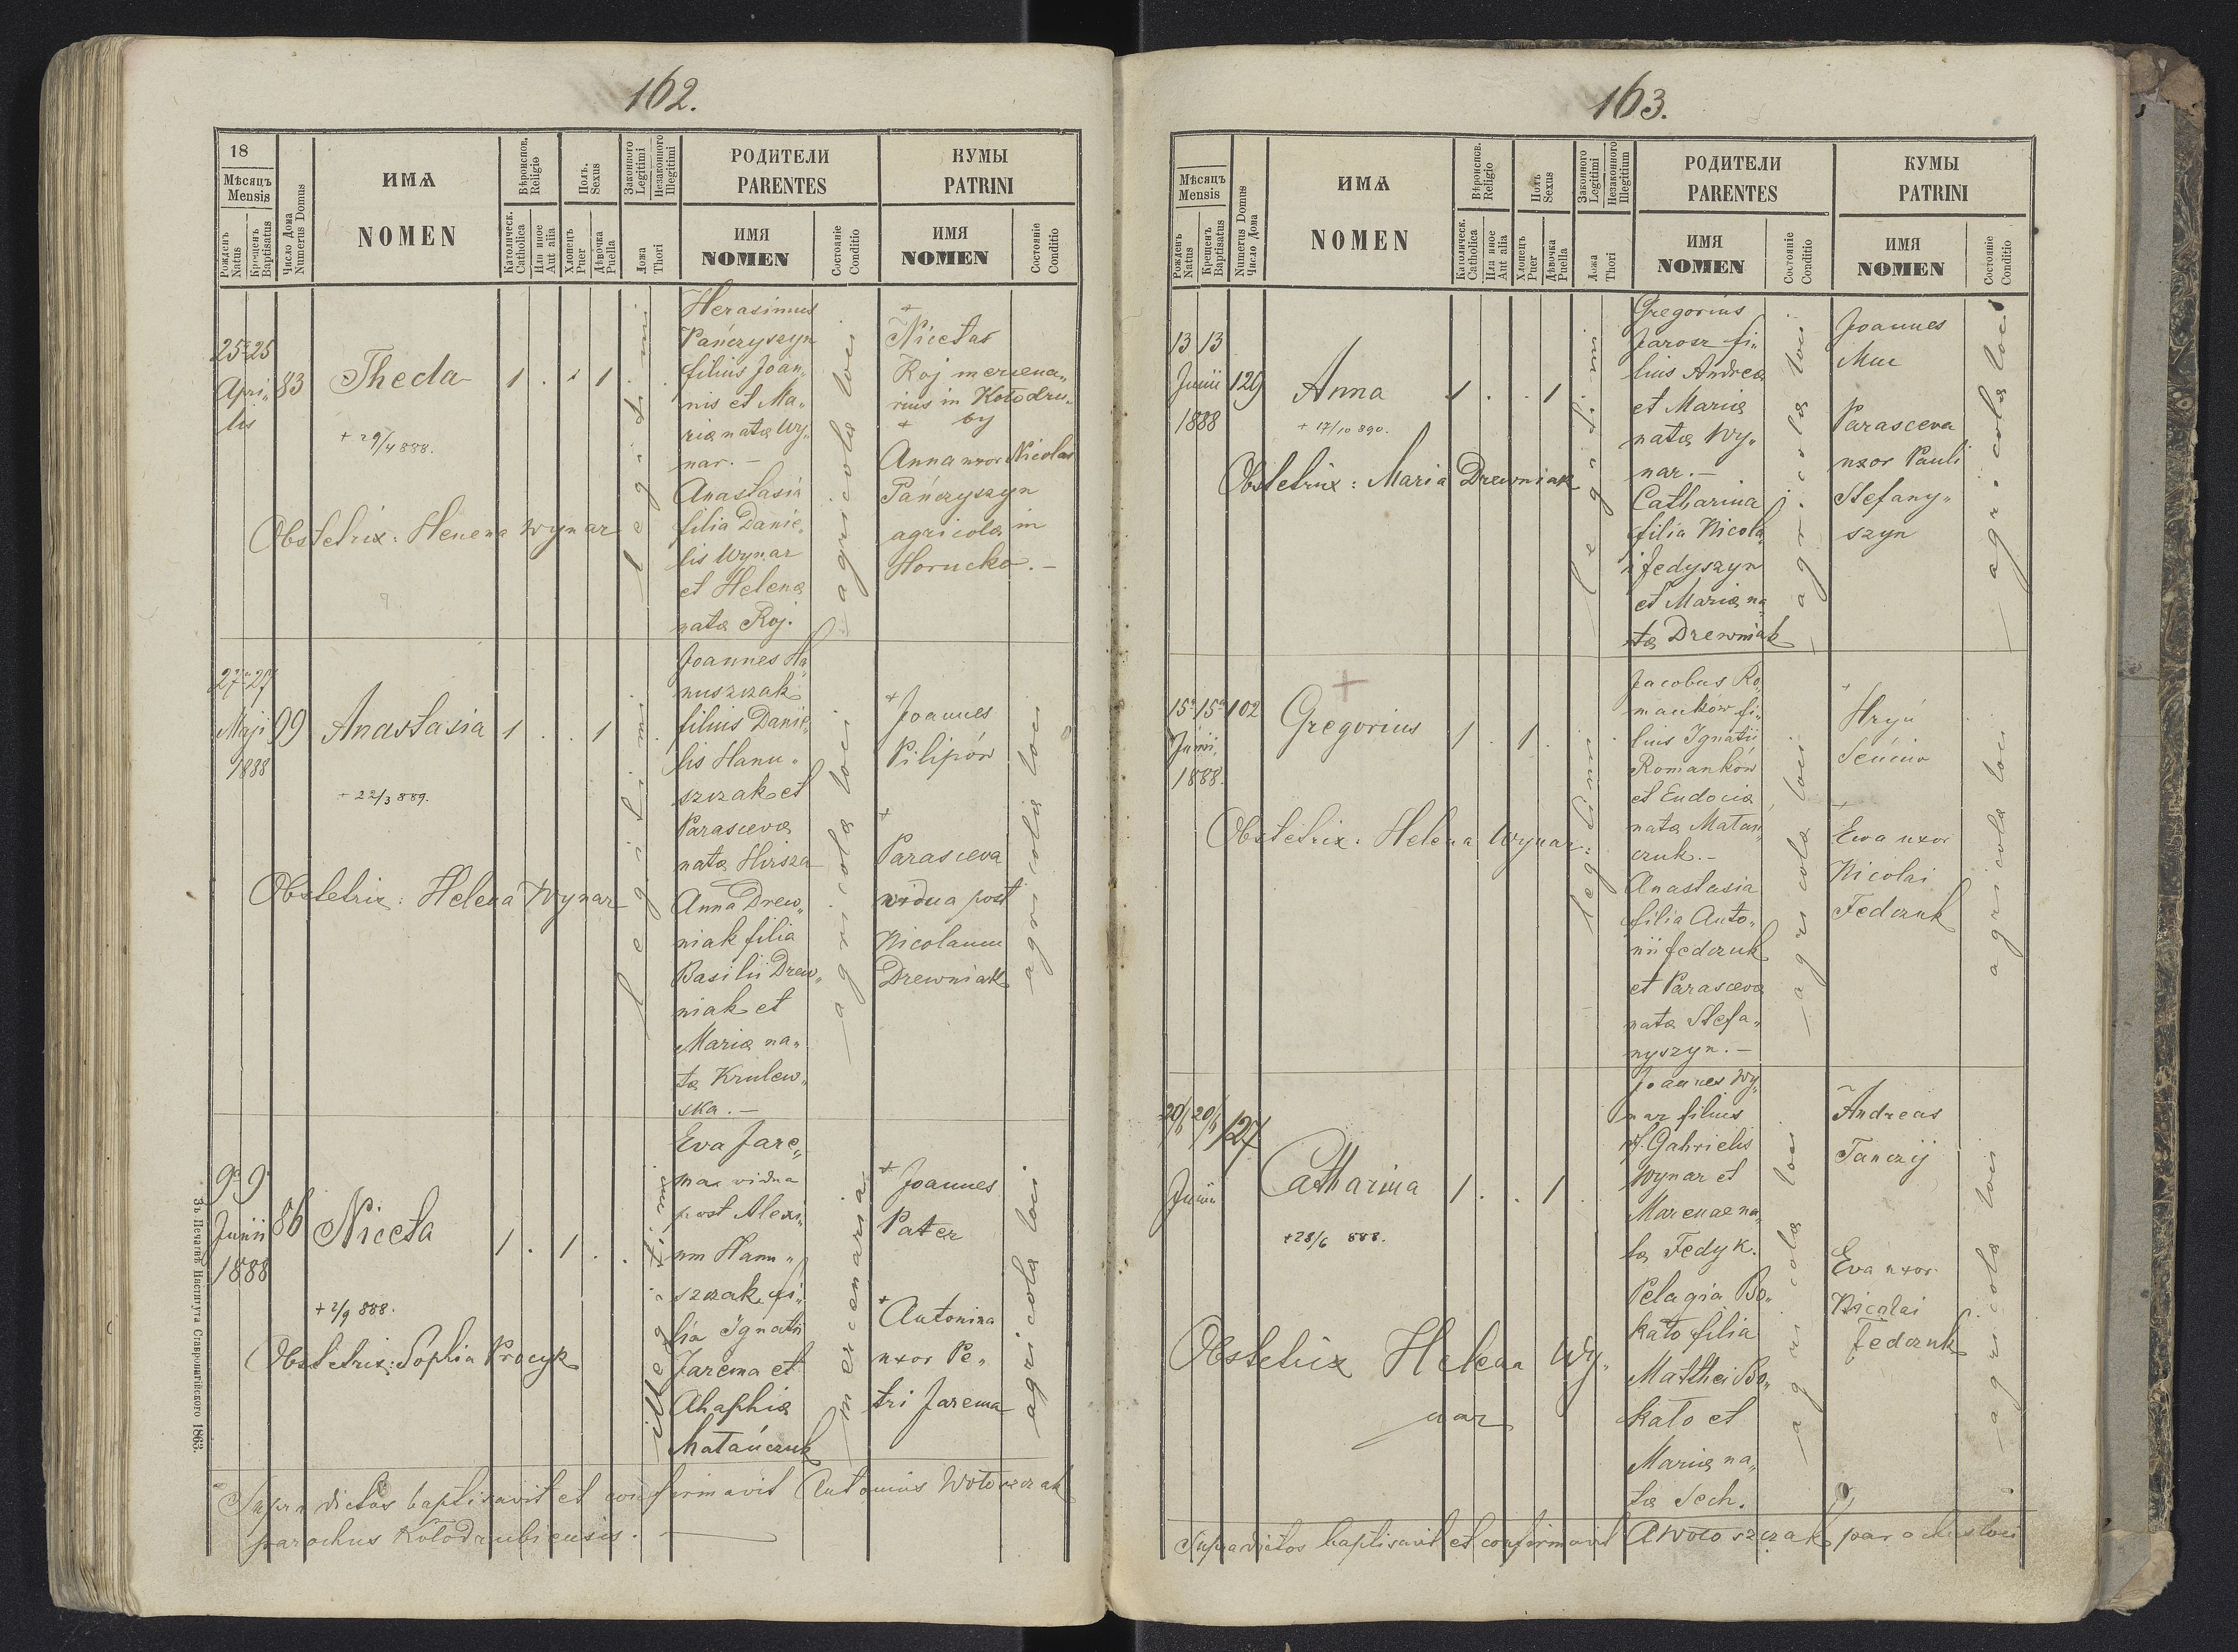 162.
18
Мѣсяцъ
Mensis
Рожденъ
Natus
Крещенъ
Baptisatus
Число Дома
Numerus Domus
ИМѦ
NOMEN
Вѣроиспов.
Religio
Католическ.
Catholica
Или иное
Aut alia
Полъ.
Sexus
Хлопецъ
Puer
Дѣвочка
Puella
Законного
Legitimi
Незаконного
Illegitimi
Ложа
Thori
РОДИТЕЛИ
PARENTES
ИМЯ
NOMEN
Состояніе
Conditio
КУМЫ
PATRINI
ИМЯ
NOMEN
Состояніе
Conditio
25 25
Apri„
lis
83
Theda
1 . . 1
+ 29/4 888.
Obstetrix: Helena Wynar
legitimi
Herasimus
Pańczyszyn
filius Joan„
nis et Ma„
riæ natæ Wy„
nar. —
Anastasia
filia Danie„
lis Wynar
et Helenæ
natæ Roj.
agricolæ loci
+
Nicetas
Roj mercena„
rius in Kołodru„
by
+
Anna uxor Nicolai
Pańczyszyn
agricolæ in
Horucko. —
27 27
Maji
1888
99
Anastasia
1 . . 1
+ 22/3 889.
Obstetrix: Helena Wynar
legitimi
Joannes Ha„
nuszczak
filius Danie„
lis Hanu„
szczak et
Parascevæ
natæ Hirsza
Anna Drew„
niak filia
Basilii Drew„
niak et
Mariæ na„
tæ Krulew„
ska. —
agricolæ loci
+
Joannes
Pilipów
+
Parasceva
vidua post
Nicolaum
Drewniak
agricolæ loci
9 9
Junii
1888
86
Niceta
1 . 1 .
+ 2/9 888.
Obstetrix: Sophia Procyk
illegitimi
Eva Jare„
ma vidua
post Alexi„
um Hanu„
szczak fi„
lia Ignatii
Jarema et
Ahaphiæ
Matańczuk
mercenaria
+
Joannes
Pater
+
Antonina
uxor Pe„
tri Jarema
agricola loci
Supra dictos baptisavit et confirmavit Antonius Wołoszczak
parochus Kołodrubiensis.
Зъ Печатнѣ Института Ставропигійского 1863.
163.
Мѣсяцъ
Mensis
Рожденъ
Natus
Крещенъ
Baptisatus
Numerus Domus
Число Дома
ИМѦ
NOMEN
Вѣроиспов.
Religio
Католическ.
Catholica
Или иное
Aut alia
Полъ
Sexus
Хлопецъ
Puer
Дѣвочка
Puella
Законного
Legitimi
Незаконного
Illegitimi
Ложа
Thori
РОДИТЕЛИ
PARENTES
ИМЯ
NOMEN
Состояніе
Conditio
КУМЫ
PATRINI
ИМЯ
NOMEN
Состояніе
Conditio
13 13
Junii
1888
129
Anna
1 . . 1
+ 17/10 890.
Obstetrix: Maria Drewniak
legitimi
Gregorius
Jarosz fi„
lius Andreæ
et Mariæ
natæ Wy„
nar. —
Catharina
filia Nicola„
i Fedyszyn
et Mariæ na„
tæ Drewniak
agricolæ loci
Joannes
Muc
Parasceva
uxor Pauli
Stefany„
szyn
agricolæ loci
15 15
Junii
1888.
102
Gregorius
1 . 1 .
Obstetrix: Helena Wynar
legitimi
Jacobus Ro„
manków fi„
lius Ignatii
Romanków
et Eudociæ
natæ Matan„
czuk. —
Anastasia
filia Anto„
nii Fedczuk
et Parascevæ
natæ Stefa„
nyszyn. —
agricolæ loci
+
Hryń
+
Ewa uxor
Nicolai
Fedczuk
agricolæ loci
20/6 20/6
Junii
127
Catharina
1 . . 1
+ 28/6 888.
Obstetrix Helena Wy„
nar
Joannes Wy„
nar filius
Gabrielis
Wynar et
Marenae na„
tæ Fedyk.
Pelagia Bo„
kało filia
Matthei Bo„
kało et
Mariæ na„
tæ Sech.
agricolæ loci
Andreas
Tanczij
Eva uxor
Nicolai
Fedczuk
agricolæ loci
Supradictos baptisavit et confirmavit A Wołoszczak parochus loci